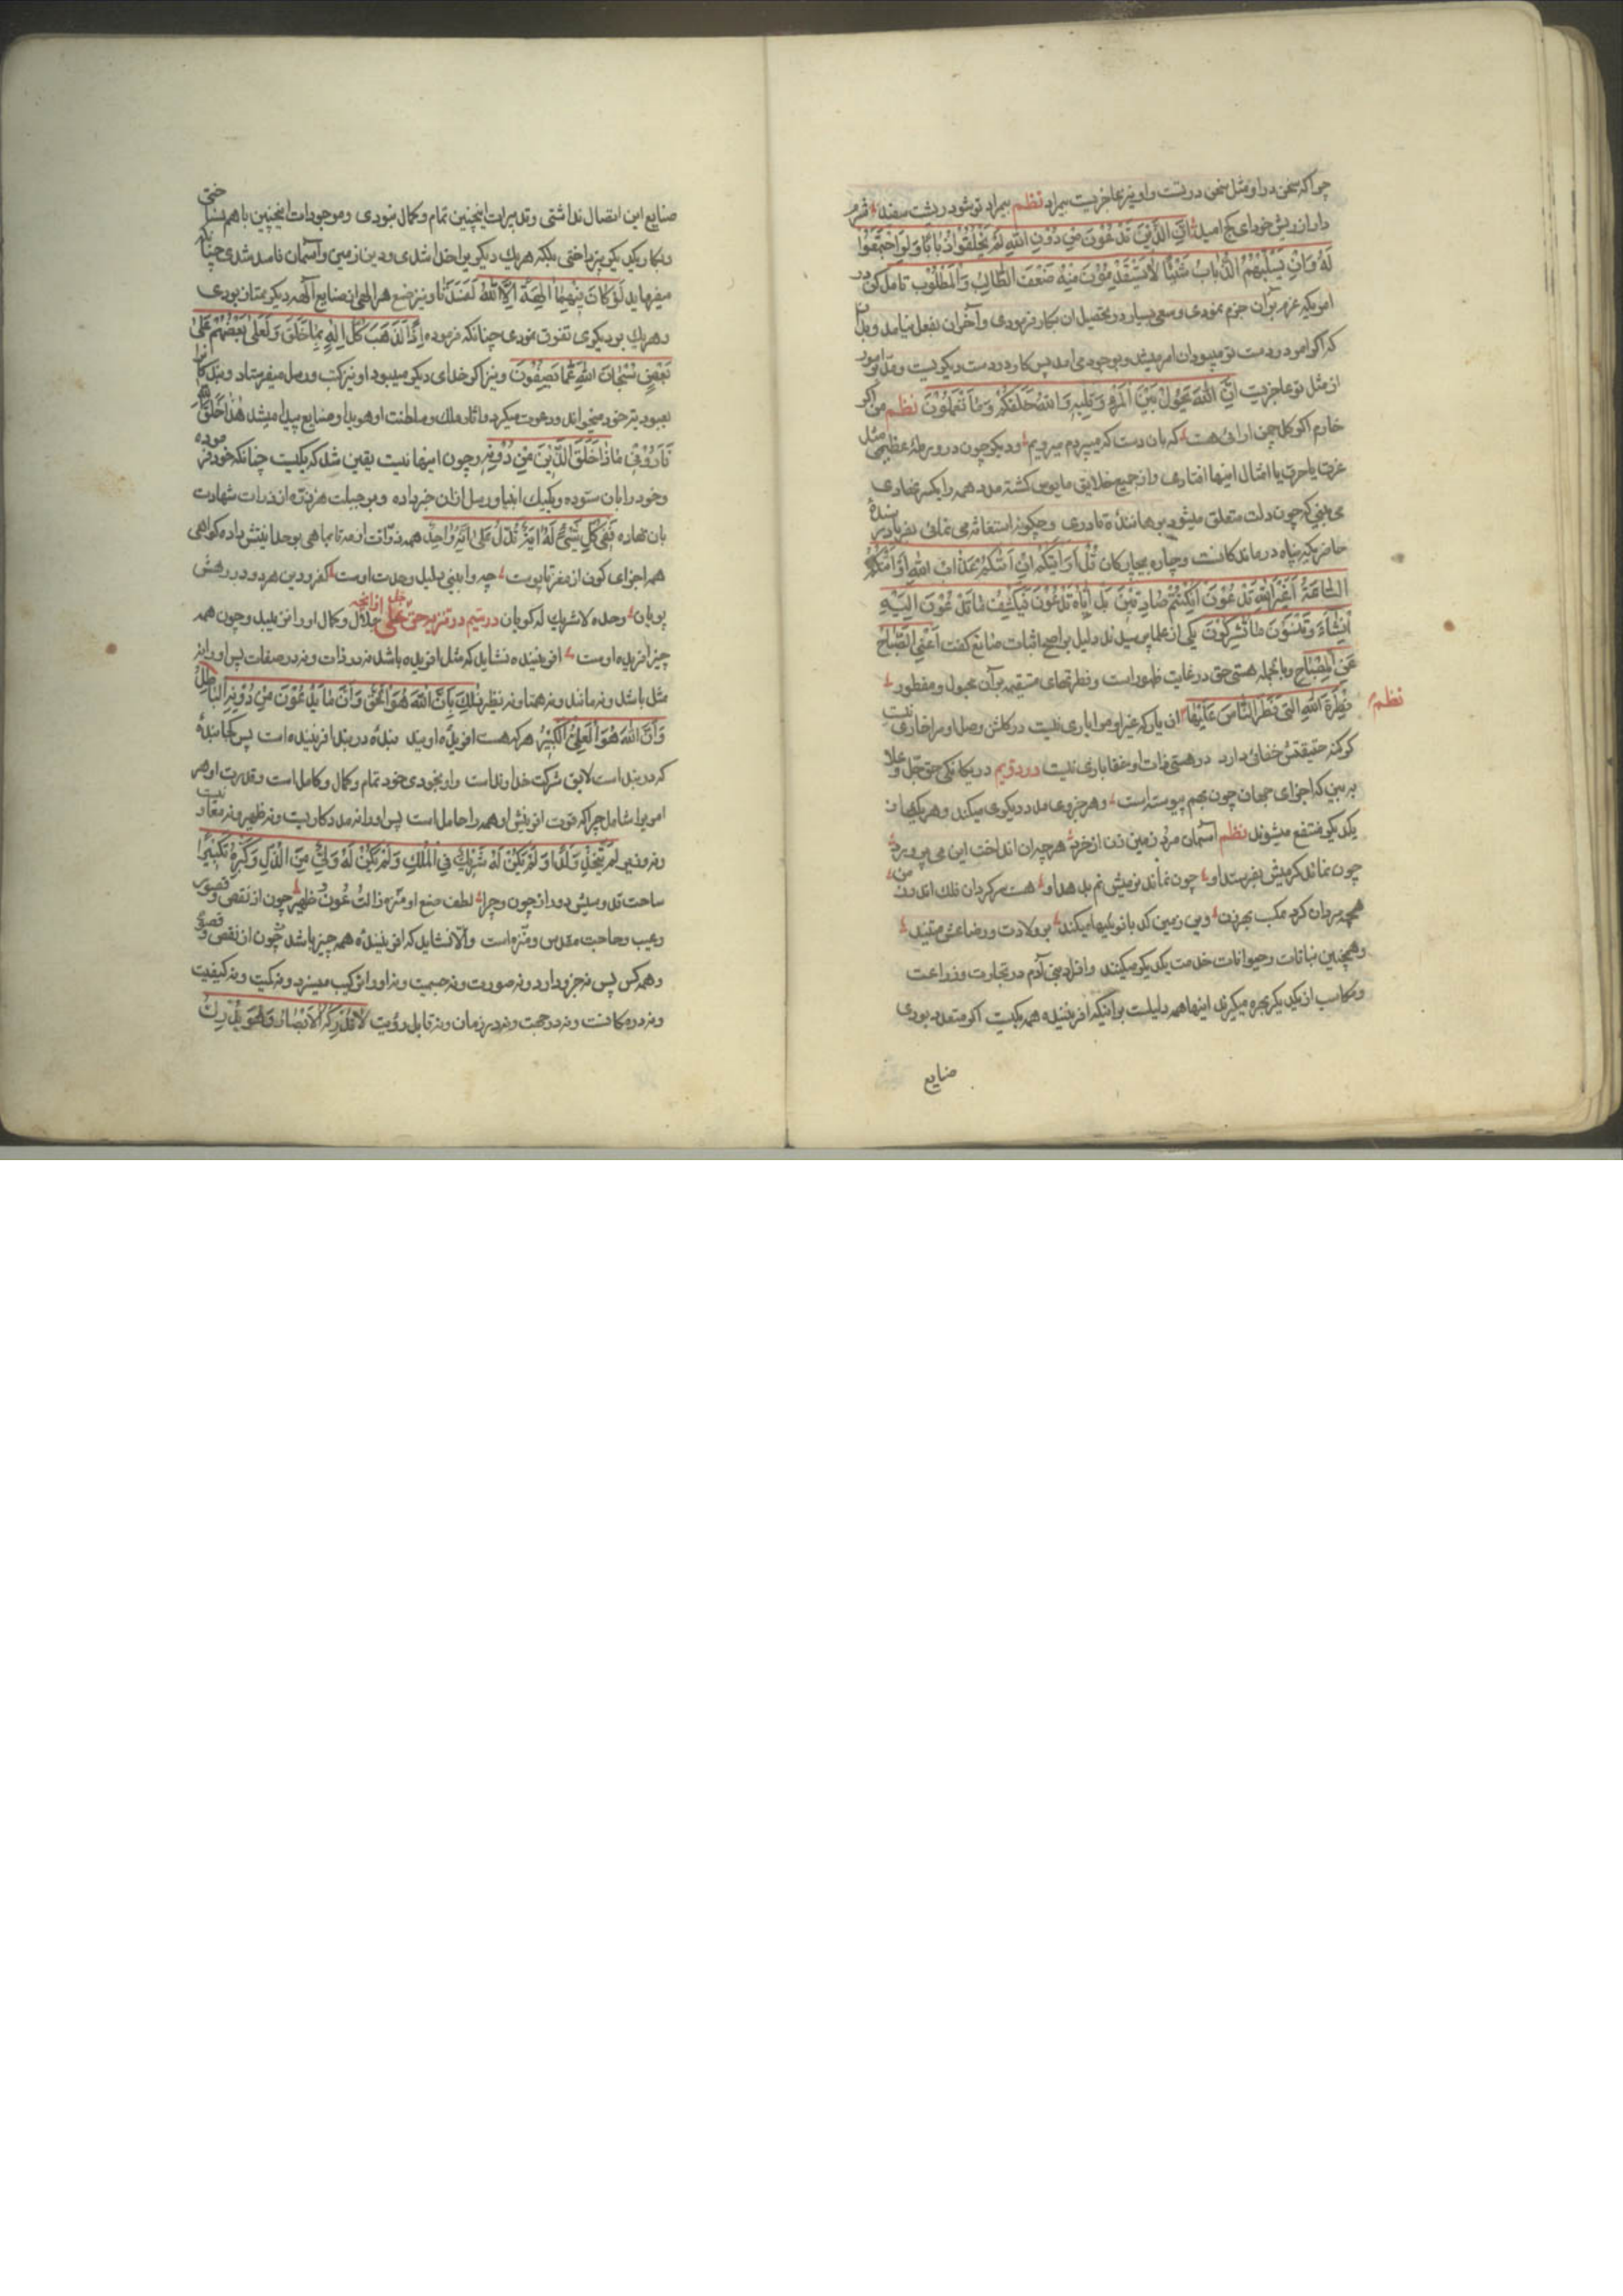 چراکه سخن در او مثل سخن در تست و او نیز عاجزیست بیمراد نظم بیمراد تو شود ریشت سفید شرم
دار از ریش خود ای کج امید إن الذین تدعون من دون الله لم یخلقوا ذبابا ولو اجتمعوا
له وإن یسلبهم الذباب شیئا لا یستنقذوه منه ضعف الطالب والمطلوب تامل کن در
امریکه عزم بر آن جزم نمودی و سعی بسیار در تحصیل ان بکار فرمودی و آخر آن بفعل نیامد و بدان
که اگر امور در دست تو میبود ان امر میشد و بوجود می امد پس کار در دست دیگریست و مدبر امور
از مثل تو عاجزیست إن الله یحول بین المرء وقلبه والله خلقکم وما تعملون نظم من اگر
خارم اگر گل چمن ارائی هست که بان دست که میپرردم میرویم و دیگر چون در ورطهٔ عظیمی مثل
غرق یا حرق یا امثال اینها افتادی و از جمیع خلایق مایوس گشته مدد همه را یکسر نهادی
می بینی که چون دلت متعلق میشود بر هانندهٔ قادری و چگونه استغاثه می نمائی بفریادرسندهٔ
حاضر بگیر پناه درماندگانست و چاره بیچارگان قل أرأیتکم إن أتیکم عذاب الله أو أتتکم
الساعة أغیر الله تدعون إن کنتم صادقین بل إیاه تدعون فیکشف ما تدعون إلیه
إن شاء وتنسون ما تشرکون یکی از علما پرسیدند دلیل بر اصح اثبات صانع گفت أغنی الصباح
عن المصباح و بالجمله هستی حق در غایت ظهور است و فطرتهای مستقیمه بر آن مجبول و مفطور
نظم
فطرة الله التی فطر الناس علیها ان یار که غیر او مرا یاری نیست در گلشن وصل او مرا خاری نیست
گر کنه حقیقتش خفائی دارد در هستی ذات او خفا باری نیست در دویم در یگانگی حق جل و علا
به بین که اجزای جهان چون بهم پیوسته است و هر جزوی مدد دیگری میکند و هر یکی از
یکدیگر منتفع میشوند نظم آسمان مرد و زمین زن از خرد هر چه ان انداخت این می پرورد
چون نماند گرمیش بفرستد او چون نماند نومیش نم بدهد او هست سرگردان فلک اندر زمن
همچو مردان گرد مکسب بهر زن وین زمین کدبانوییها میکند بر ولادت و رضاعش می تند
و همچنین نباتات و حیوانات خدمت یکدیگر میکنند و افراد بنی آدم در تجارت و زراعت
و مکاسب از یکدیگر بهره میگیرند اینها همه دلیلست بر انکه آفریننده همه یکیست اگر متعدد بودی
صنایع
صنایع این اتصال نداشتی و تدبیرات اینچنین تمام و کمال نبودی و موجودات اینچنین با هم نساختی
و بکار یکدیگر نپرداختی بلکه هر یک دیگری را خدا شدی و دین از زمین و آسمان فاسد شدی چنانکه
میفرماید لو کان فیهما الهة إلا الله لفسدتا و نیز صنع هر الهی از صنایع آلهه دیگر ممتاز بودی
و هر یک بر دیگری تفوق نمودی چنانکه فرموده إذا لذهب کل إله بما خلق ولعلی بعضهم علی
بعض سبحان الله عما یصفون و نیز اگر خدای دیگر میبود او نیز کتب و رسل میفرستاد و بندگان را
بعبودیت خود میخواند و دعوت میکرد و اثار ملک و سلطنت او هویدا و صنایع پیدا میشد هذا خلق الله
فأرونی ماذا خلق الذین من دونه و چون اینها نیست یقین شد که یکیست چنانکه خود فرموده
و خود را بان ستوده و یکیک انبیا و رسل ازان خبر داده و بر جبلت هر ذره از ذرات شهادت
بان نهاده ففی کل شیء له ایة تدل علی انه واحد همه ذرات از مه تا بماهی بوحدانیتش داده گواهی
همه اجزای کون از مغز تا پوست چو وا بینی دلیل وحدت اوست کفر و دین هر دو در رهش
پویان وحده لا شریک له گویان در سیم در تنزیه حق جل علی از انچه جلال و کمال او را نزیبد و چون همه
چیز افریده اوست افریننده نشاید که مثل افریده باشد نه در ذات و نه در صفات پس او را نه
مثل باشد و نه مانند و نه همتا و نه نظیر ذلک بأن الله هو الحق وأن ما یدعون من دونه الباطل
وأن الله هو العلی الکبیر هر که هست افریدهٔ اویند بندهٔ در بند افریننده است پس کجا بندهٔ
که در بند است لایق شرکت خداونداست و او بخودی خود تمام و کمال و کامل است و قدرت او هر
امر را شامل چراکه قوت افرینش او همه را حاملست پس او را نه مددکاریست و نه ظهیر و نه معاونیست
و نه وزیر لم یتخذ ولدا ولم یکن له شریک فی الملک ولم یکن له ولی من الذل وکبره تکبیرا
ساحت قدوسیش دور از چون و چرا لطف صنع او منزه ذالت عون ظهیر چون از نقص و قصور
و عیب و حاجت مقدس و منزه است والا نشاید که افرینندهٔ همه چیز باشد چون از نقص و قصور
و همه کس پس نه جزو دارد و نه صورت و نه جسمیت و نه او را ترکیب میسزد و نه کمیت و نه کیفیت
و نه در مکانست و نه در جهت و نه در زمان و نه قابل رؤیت لا تدرکه الأبصار وهو یدرک